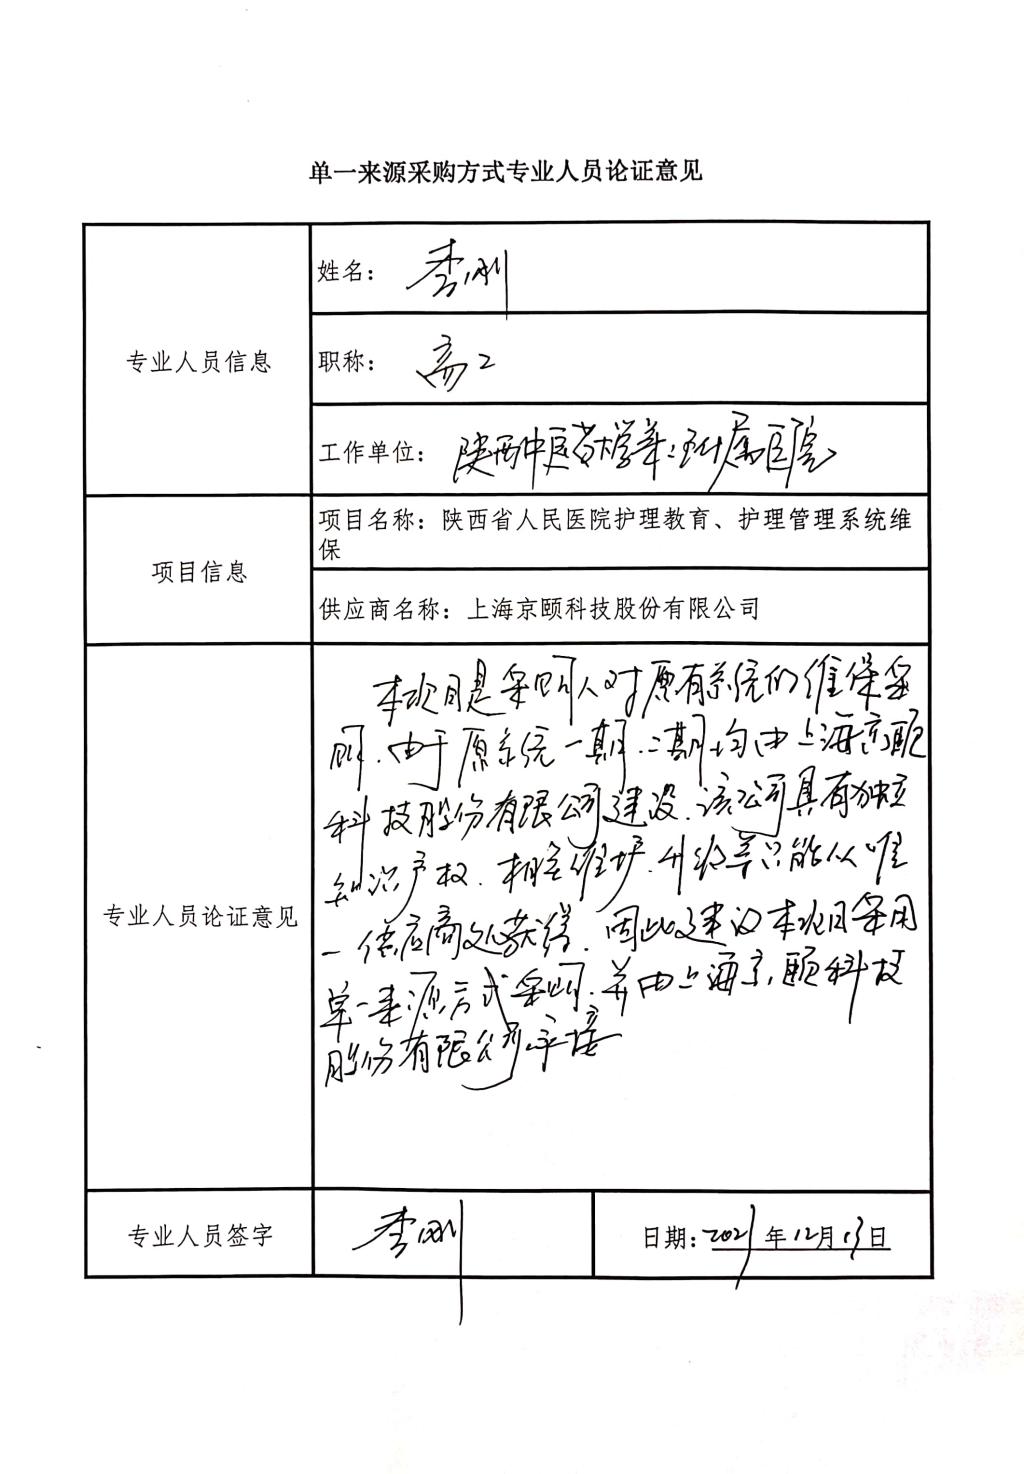 单一来源采购方式专业人员论证意见
专业人员信息
姓名： 李刚
职称： 高工
工作单位： 陕西中医药大学第二附属医院
项目信息
项目名称：陕西省人民医院护理教育、护理管理系统维
保
供应商名称：上海京颐科技股份有限公司
专业人员论证意见
本次目是采购人对原有系统的维保采
购.由于原系统一期.二期均由上海京颐
科技股份有限公司建设.该公司具有独立
知识产权.相关维护.升级等只能从唯
一供应商处获得.因此建议本次目采用
单一来源方式采购.并由上海京颐科技
股份有限公司承接
专业人员签字
李刚
日期： 年12月13日